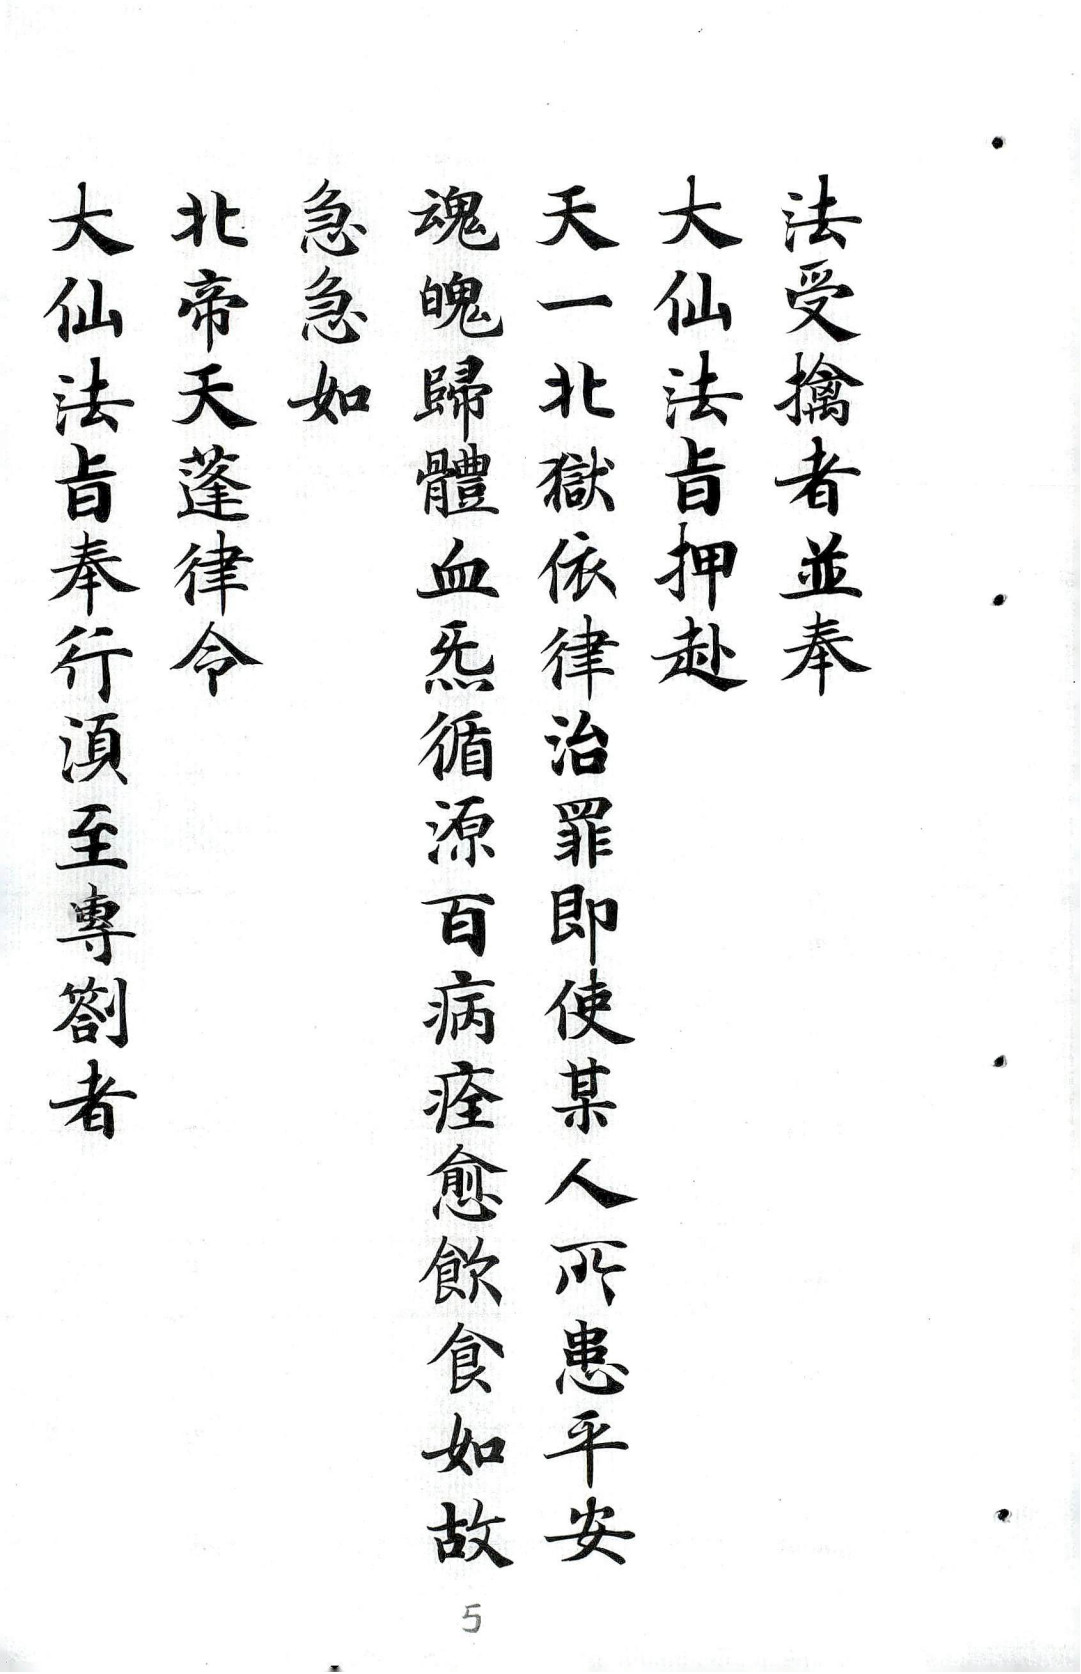 法受擒者並奉
大仙法旨押赴
天一北獄依律治罪即使某人所患平安
魂魄歸體血炁循源百病痊愈飲食如故
急急如
北帝天蓬律令
大仙法旨奉行須至專劄者
5